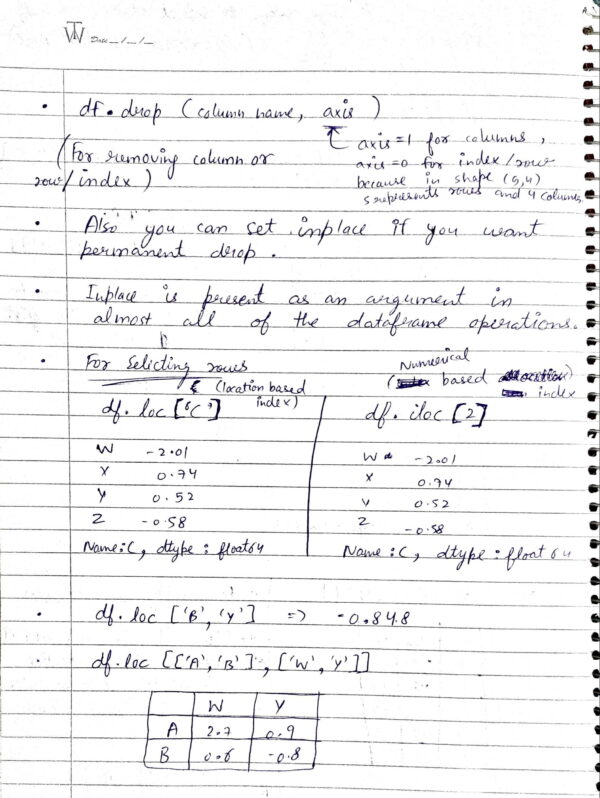 TW Date _/_/_
• df.drop (column name, axis)
axis=1 for columns,
(For removing column or
axis=0 for index/row
row/index)
because in shape (5,4)
5 represents rows and 4 columns
• Also you can set inplace if you want
permanent drop.
• Inplace is present as an argument in
almost all of the dataframe operations.
• For Selecting rows
(location based index)
Numerical
( based index
df.loc['C'] df.iloc[2]
W -2.01 W -2.01
X 0.74 X 0.74
Y 0.52 Y 0.52
Z -0.58 Z -0.58
Name: C, dtype: float64 Name: C, dtype: float64
• df.loc ['B', 'Y'] => -0.848
• df.loc [['A', 'B'], ['W', 'Y']]
W Y
A 2.7 0.9
B 0.6 -0.8